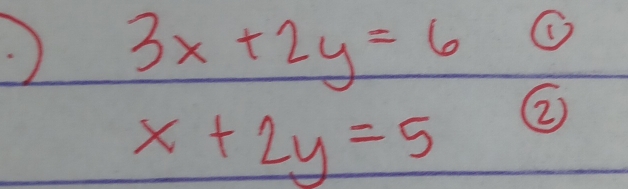 .) 3x + 2y = 6 ①
x + 2y = 5 ②